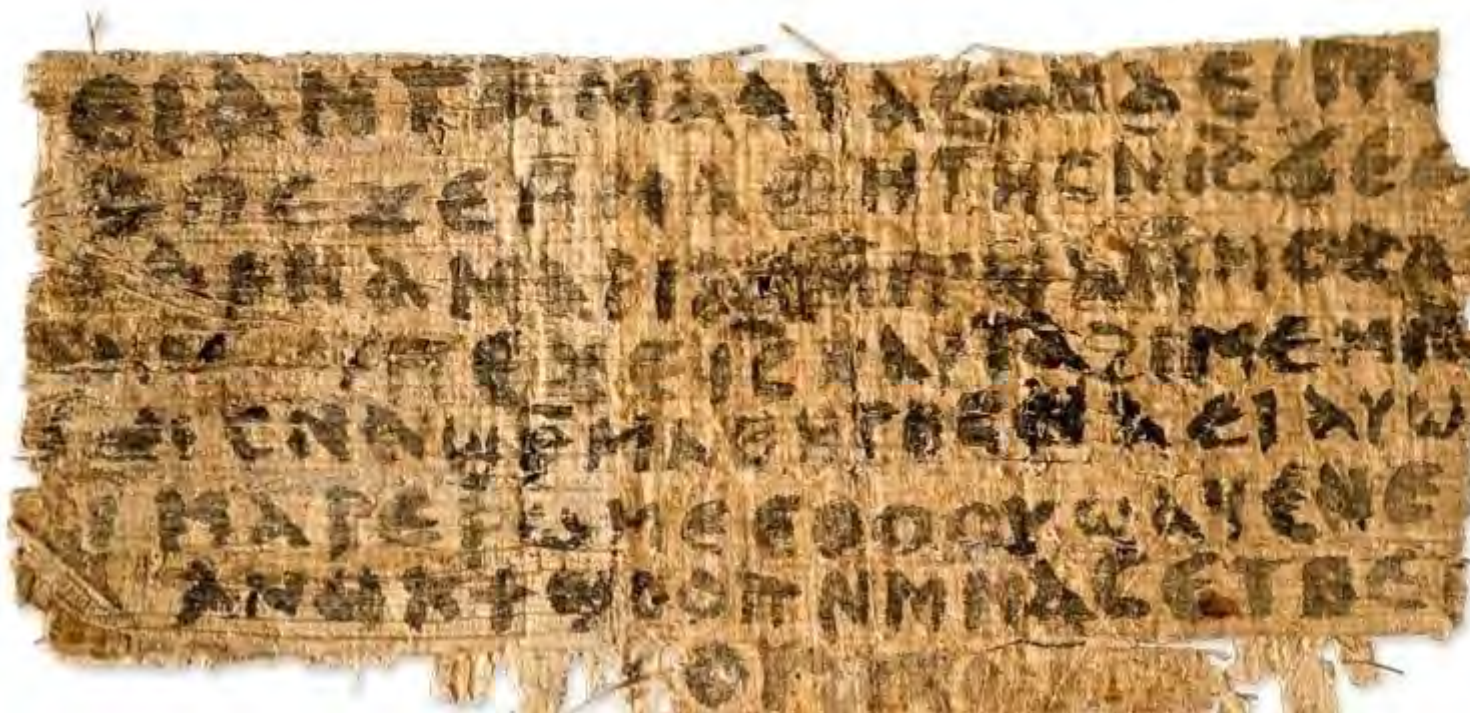 ⲉⲓⲁⲛⲧⲁⲙⲁⲁⲩⲁⲥϯⲛⲁⲉⲓⲡ
ⲡⲉϫⲉⲙⲙⲁⲑⲏⲧⲏⲥⲛⲓ̅ⲥ̅ϫⲉⲥ
ⲁⲣⲛⲁⲙⲁⲣⲓⲁⲙ
ⲡⲉϫⲉⲓ̅ⲥ̅ⲛⲁⲩⲧⲁϩⲓⲙⲉⲙⲛ
ⲥⲛⲁϣⲣ̅ⲙⲁⲑⲏⲧⲏⲥⲛⲁⲉⲓⲁⲩⲱ
ⲓⲙⲁⲣⲉⲣⲱⲙⲉⲉⲑⲟⲟⲩϣⲁϥⲉⲛⲉ
ⲁⲛⲟⲕϯϣⲟⲟⲡⲛⲙⲙⲁⲥⲉⲧⲃⲉ